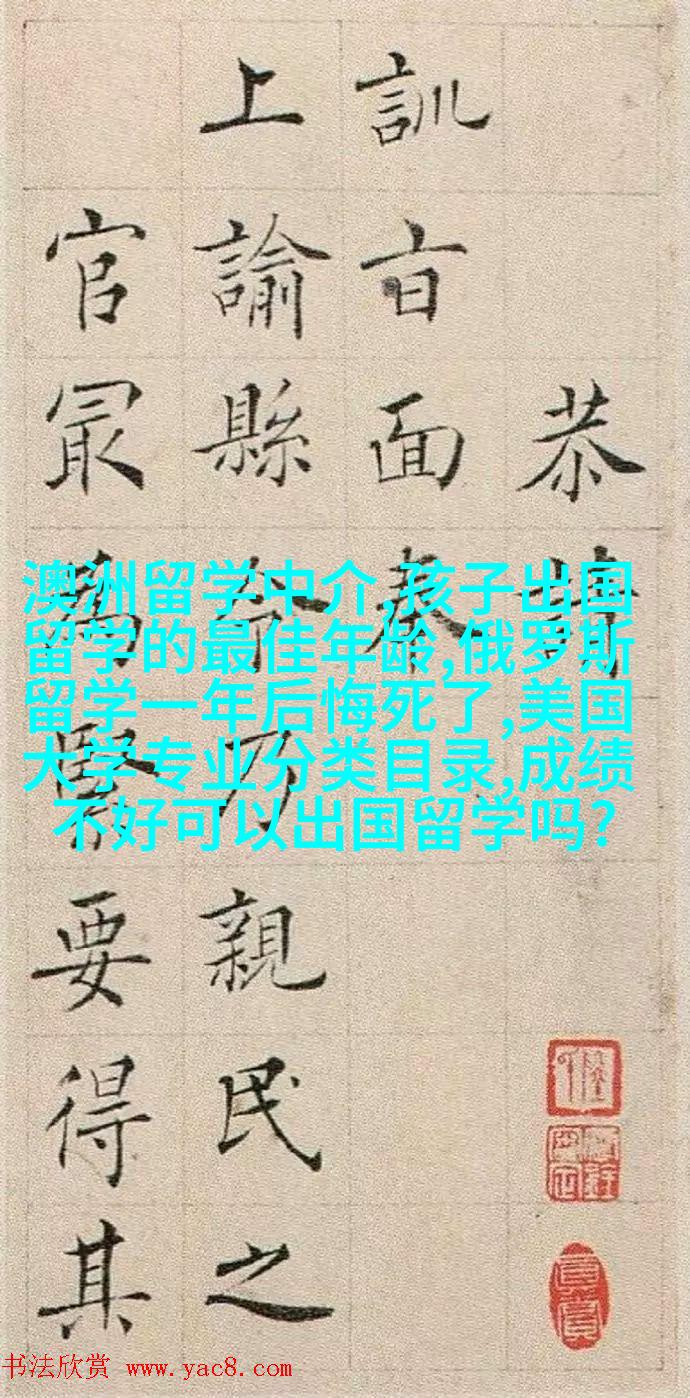 恭
訓旨面奉
上諭縣令乃親民之
官最為緊要得其
澳洲留学中介,孩子出国
留学的最佳年龄,俄罗斯
留学一年后悔死了,美国
大学专业分类目录,成绩
不好可以出国留学吗?
书法欣赏 www.yac8.com